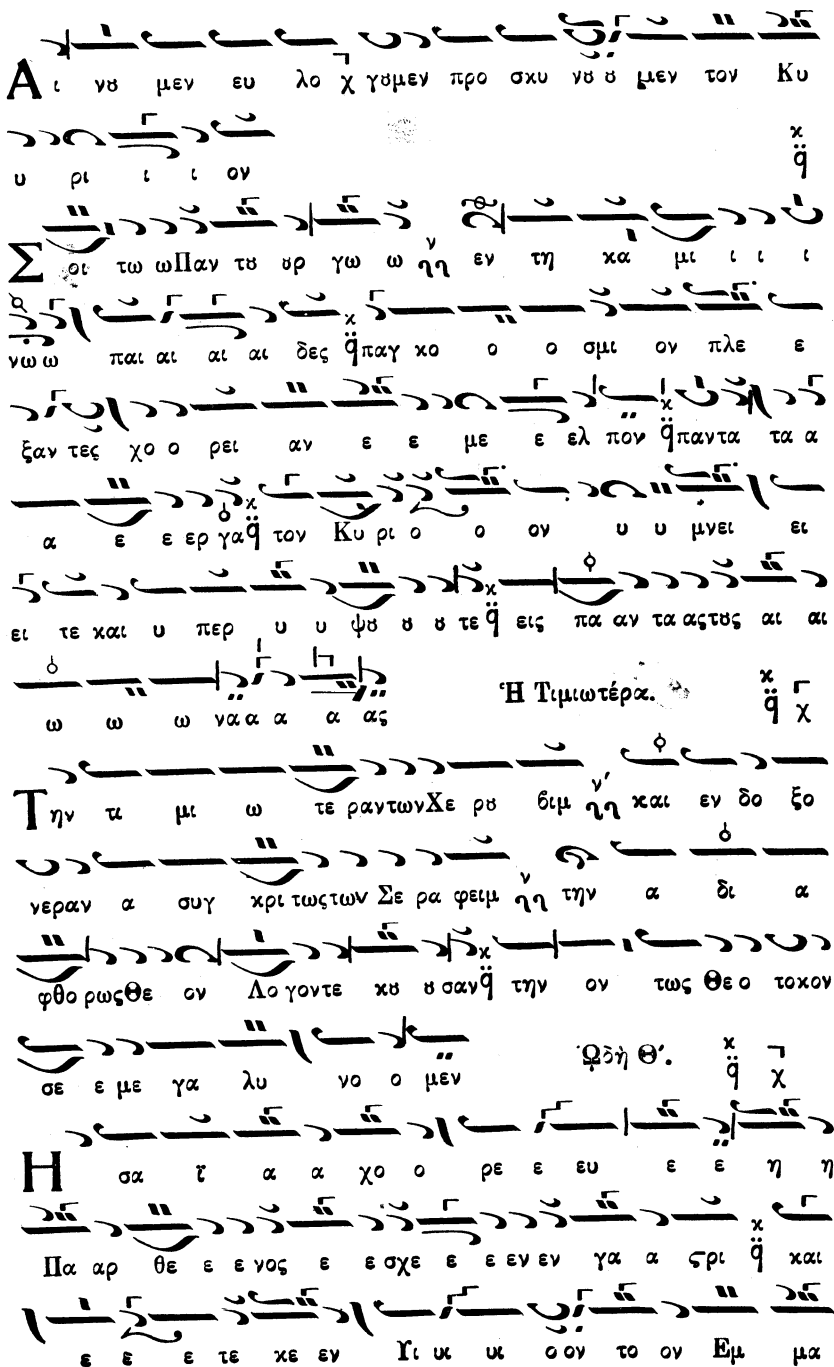 Αι νȣ μεν ευ λο χ γȣμεν προ σκυ νȣ ȣ μεν τον Κυ
υ ρι ι ι ον
Σ οι τω ω Παν τȣ ȣρ γω ω εν τη κα μι ι ι ι
νω ω παι αι αι αι δες παγ κο ο ο σμι ον πλε ε
ξαν τες χο ο ρει αν ε ε με ε ελ πον παντα τα α
α ε ε ερ γα τον Κυ ρι ο ο ον υ υ μνει ει
ει τε και υ περ υ υ ψȣ ȣ ȣ τε εις πα αν τα ας τȣς αι αι
ω ω ω να α α α α ας Ἡ Τιμιωτέρα. χ
Την τι μι ω τε ραν των Χε ρȣ βιμ και εν δο ξο
νεραν α συγ κρι τως των Σε ρα φειμ την α δι α
φθο ρως Θε ον Λο γον τε κȣ ȣ σαν την ον τως Θε ο τοκον
σε ε με γα λυ νο ο μεν Ὠδὴ Θ΄. χ
Η σα ϊ α α χο ο ρε ε ευ ε ε η η
Πα αρ θε ε ε νος ε ε σχε ε ε εν εν γα α ςρι και
ε ε ε τε κε εν Υι υι υι ο ον το ον Εμ μα